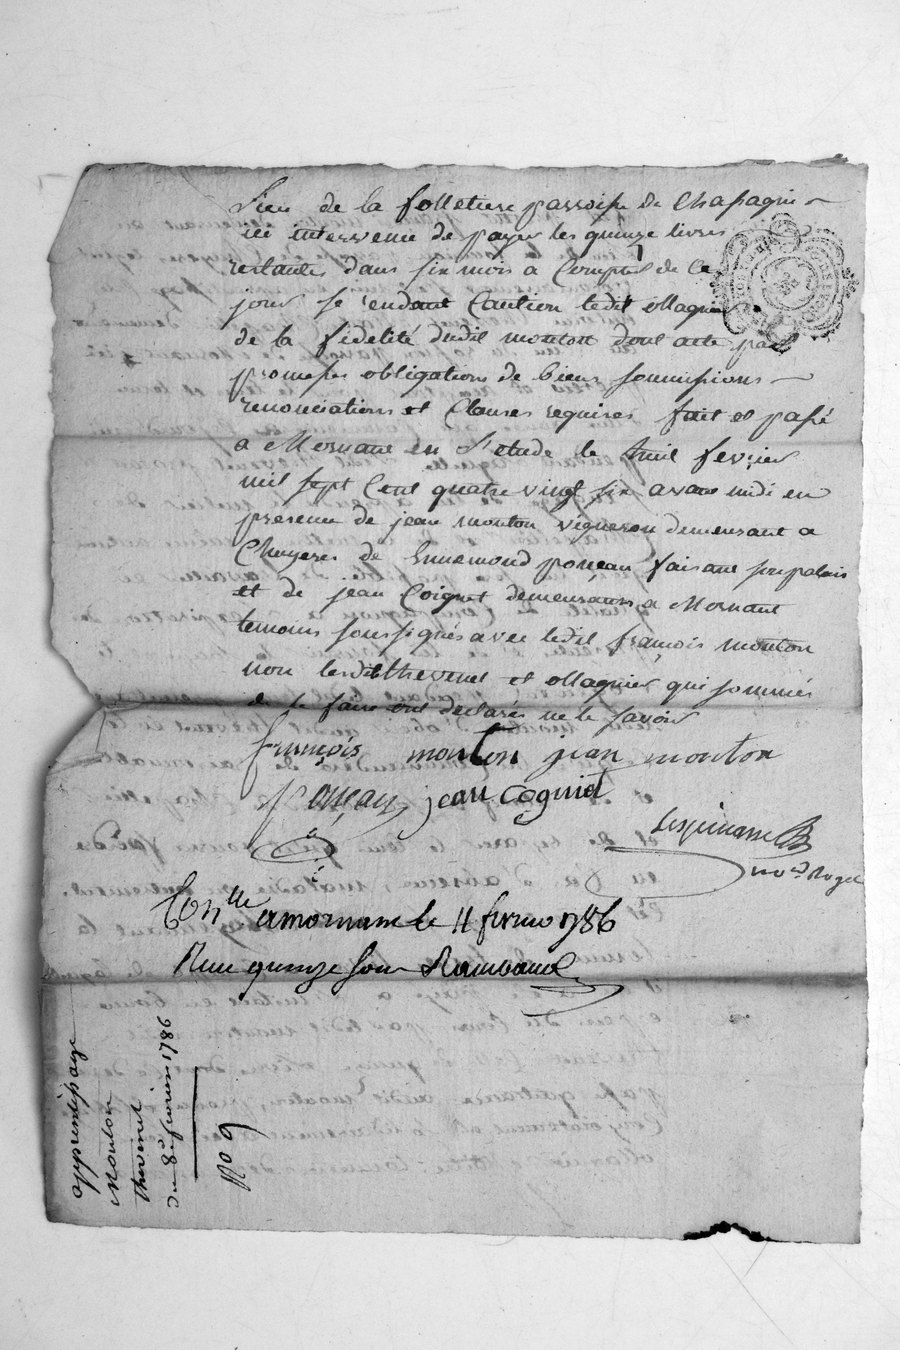 Lieu de la folletiere parroisse de Chassagni
ici intervenu de payer les quinze livres
restantes dans six mois a Compter de Ce
jour se rendant Caution ledit ollagnier
de la fidelité dudit mouton dont acte par
promesses obligations de biens soumissions
renonciations et Clauses requises fait et passé
a Mornant en L'etude le huit fevrier
mil sept Cent quatre vingt six avant midi en
presence de jean mouton vigneron demeurant a
de Ennemond ponceau faisant son palais
et de jean Coignet demeurants a Mornant
temoins soussignés avec ledit françois mouton
non lesdits thevenet et ollagnier qui sommés
de le faire ont declarés ne le savoir
françois mouton jean mouton
ponçau jean cogniet
Lespinasse
no.re Royal
Con.lle a mornant le 11 fevrier 1786
Reçu quinze sous
apprentissage
Mouton
thevenet
du 8e fevrier 1786
No 9